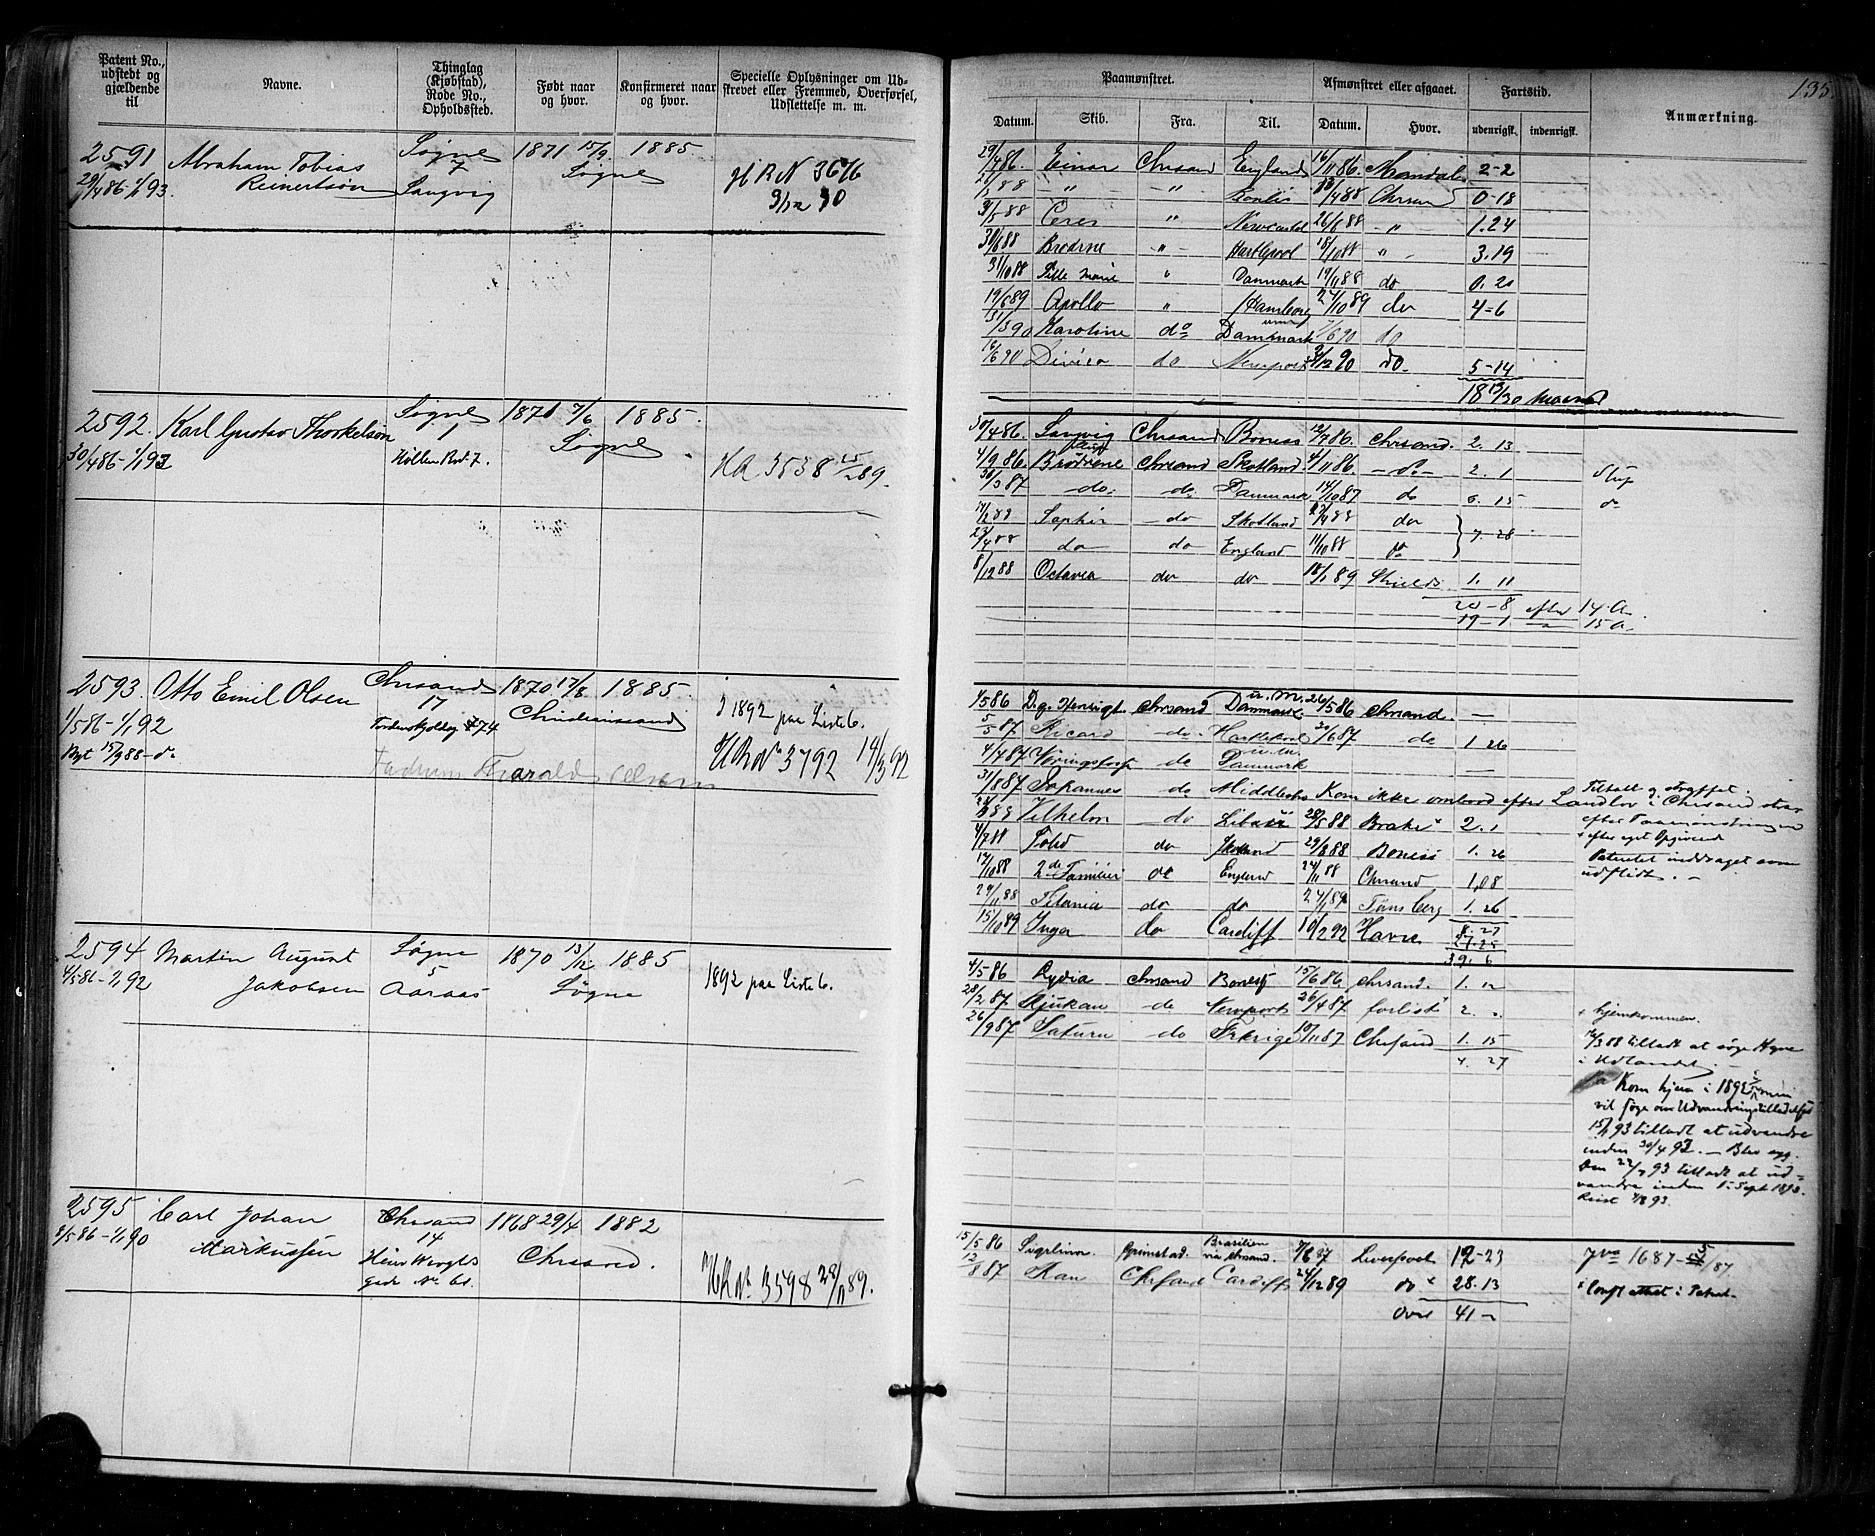 135.
Patent No., udstedt og gjældende til
Navne.
Thinglag (Kjøbstad), Rode No., Opholdssted.
Født naar og hvor.
Konfirmeret naar og hvor.
Specielle Oplysninger om Udskrevet eller Fremmed, Overførsel, Udslettelse m. m.
Paamønstret.
Afmønstret eller afgaaet.
Fartstid.
Anmærkning.
Datum. Skib. Fra. Til. Datum. Hvor. udenrigsk. indenrigsk.
2591 Abraham Tobias Søgne 1871 15/9 1885.
29/4 86 - 1/1 93. Reinertsøn 7 Langvig Søgne
H R N 3676
3/12 90
29/4 86. Einar Chrsand England 16/11 86. Mandal 2-2
88 - " - " 88 Chrsand 0-18
31/5 88 Ceres " Newcastel 26/6 88 - " 1.24
30/6 88 Brødrne - " - Hartlepool 18/10 88 " 3.19
31/10 88 Lille Marie " Danmark 19/11 88 do 0. 20
19/6 89 Apollo " Hamborg 24/10 89 do 4-6
31/3 90 Karoline do Danmark 7/6 90 do
16/6 90 do Newport 3/12 90 do. 5-14
18 13/30 Maaned
2592. Karl Gustav Thorkelsøn Søgne 1871 7/6 1885.
30/4 86 - 1/1 93 1 Søgne
Høllen Brd. 7.
HR 3538 25/2 89.
30/4 86. Langvig Chrsand Boness 12/7 86. Chrisand. 2. 13
4/9 86. Brødrene Chrsand Skotland 4/11 86. - do - 2. 1 Slup
30/3 87 - do. - do. Danmark 14/10 87 do 6. 15 do
14/2 88 Saphir - do Skotland 88 do
23/4 88 do do England 11/10 88 do 7. 28
8/12 88 Octavia do do 18/1 89 Shields 1. 11
20 - 8 efter 14. A.
19 - 1 - " - 15 A.
2593. Otto Emil Olsen Chrsand 1870 17/8 1885.
1/5 86 - 1/1 92 17 Christianssand
Byt 15/9 88 - do. Tordenskjoldsg 74
I 1892 paa Liste 6.
HR No 3792 14/3 92
4/5 86 Chrsand Danmark 26/5 86 Chrsand. -
5/5 87 Ricard do. Hartlepool 20/6 87 do 1. 26
4/7 87 do Danmark -
31/8 87 Johannes do Middlesbro Kom ikke ombord efter Landlov i Chrisand strax
Tiltalt og straffet.
efter Paamønstringen
88 Vilhelm do Libau 28/5 88 Brake 2. 1
+ efter eget Opgivende
4/7 88 do 29/8 88 Boness 1. 26
Patentet inddraget som
17/10 88 2de Familier do England 24/11 88 Chrsand 1,08
udslidt. -
29/11 88 Titania do do 24/1 89 Tønsberg 1. 26
15/10 89 Inga do Cardiff 10/2 92 Havre 8. 27
27. 25
39. 6
2594 Martin August Søgne 1870 13/12 1885
4/5 86 - 1/1 92 Jakobsen 5 Aaraas Søgne
1892 paa Liste 6.
4/5 86 Lydia Chrsand Boness 15/6 86 Chrsand. 1. 12
28/2 87. Rjukan do Newport 26/4 87 forlist + 2. " + hjemkommen.
26/9 87 Saturn do Sverige 10/11 87 Chrsand 1. 15
4. 27
16/3 88 tilladt at søge Hyre
i Udlandet -
Kom hjem i 1892 men
vil søge om Udvandringstilladelse
15/1 93 tilladt at udvandre
inden 30/4 93. - Blev syg.
Den 22/7 93 tilladt at ud-
vandre inden 1. Sept 1893.
Reist 4/8 93.
2595 Carl Johan Chrsand 1868 29/4 1882
8/5 86 - 1/1 90 Markussen 14 Chrsand.
Henr Wergls
gade No. 61.
HR No. 3598 28/11 89.
15/5 86 Grimstad. Brasilien via Chrsand. 87 Liverpool 12-23
12/8 87 Ran Chrsand Cardiff 24/12 89 do + 28. 13
Over 41 -
+ Confr attest i Patent.